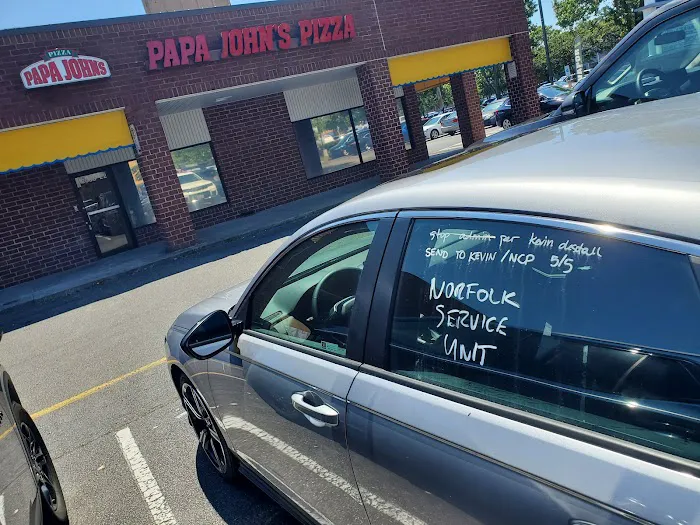 PIZZA
PAPA JOHNS
PAPA JOHN'S PIZZA
stop admin per Kevin
SEND TO KEVIN /NCP 5/5
NORFOLK
SERVICE
UNIT